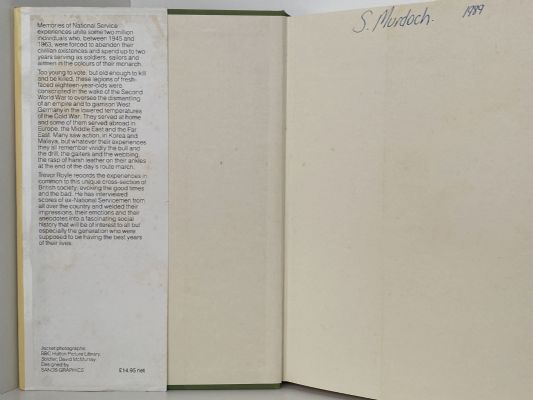 Memories of National Service
experiences unite some two million
individuals who, between 1945 and
1963, were forced to abandon their
civilian existences and spend up to two
years serving as soldiers, sailors and
airmen in the colours of their monarch.
Too young to vote, but old enough to kill
and be killed, these legions of fresh-
faced eighteen-year-olds were
conscripted in the wake of the Second
World War to oversee the dismantling
of an empire and to garrison West
Germany in the lowered temperatures
of the Cold War. They served at home
and some of them served abroad in
Europe, the Middle East and the Far
East. Many saw action, in Korea and
Malaya, but whatever their experiences
they all remember vividly the bull and
the drill, the gaiters and the webbing,
the rasp of harsh leather on their ankles
at the end of the day's route march.
Trevor Royle records the experiences in
common to this unique cross-section of
British society, evoking the good times
and the bad. He has interviewed
scores of ex-National Servicemen from
all over the country and welded their
impressions, their emotions and their
anecdotes into a fascinating social
history that will be of interest to all but
especially the generation who were
supposed to be having the best years
of their lives.
Jacket photographs:
BBC Hulton Picture Library.
Soldier, David McMurray
Designed by
SANDS GRAPHICS
£14.95 net
S. Murdoch. 1989